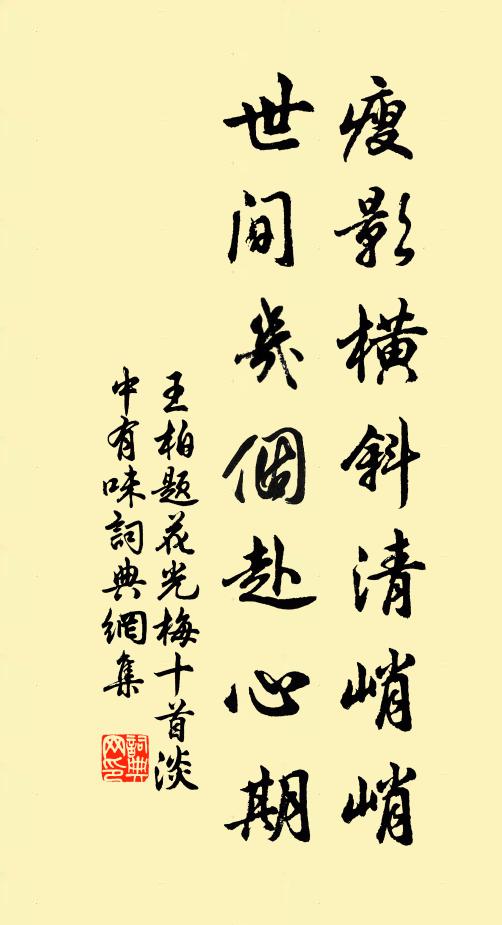 瘦影橫斜清峭峭
世间幾個赴心期
王柏题花光梅十首淡
中有味詞典網集
詞典
网印